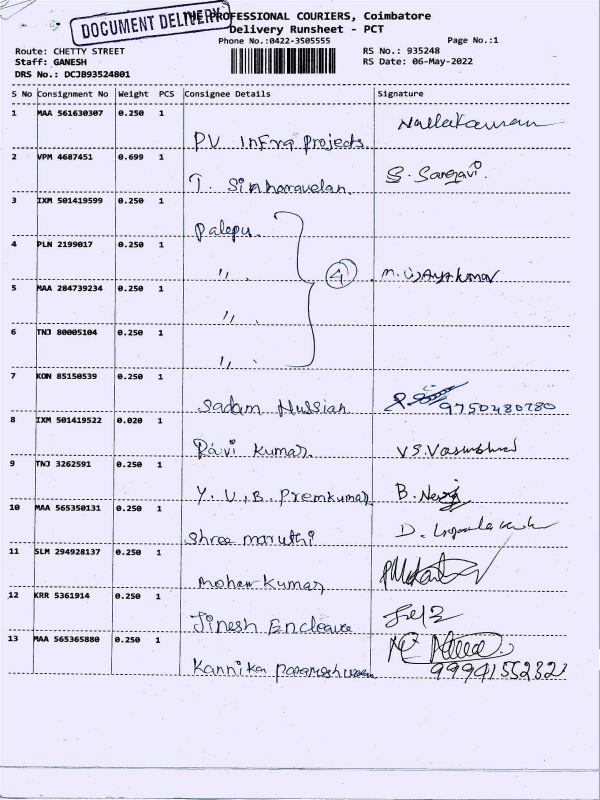 DOCUMENT DELIVERY
THE PROFESSIONAL COURIERS, Coimbatore
Delivery Runsheet - PCT
Phone No.:0422-3505555
Page No.:1
Route: CHETTY STREET
RS No.: 935248
Staff: GANESH
RS Date: 06-May-2022
DRS No.: DCJB93524801
S No Consignment No Weight PCS Consignee Details Signature
1 MAA 561630307 0.250 1
PV Infra Projects.
2 VPM 4687451 0.699 1
S. Sangavi.
T. Simharavelan
3 IXM 501419599 0.250 1
Palepu.
4 PLN 2199017 0.250 1
〃 .
4
5 MAA 284739234 0.250 1
〃 .
6 TNJ 80005104 0.250 1
〃 .
7 KON 85150539 0.250 1
Sadam Hussian
9750480780
8 IXM 501419522 0.020 1
Ravi Kumar.
9 TNJ 3262591 0.250 1
Y. U. B. Premkumar
10 MAA 565350131 0.250 1
Shree maruthi
11 SLM 294928137 0.250 1
Mohan Kumar
12 KRR 5361914 0.250 1
Jinesh Encleave
13 MAA 565365880 0.250 1
Kannika
99941552321